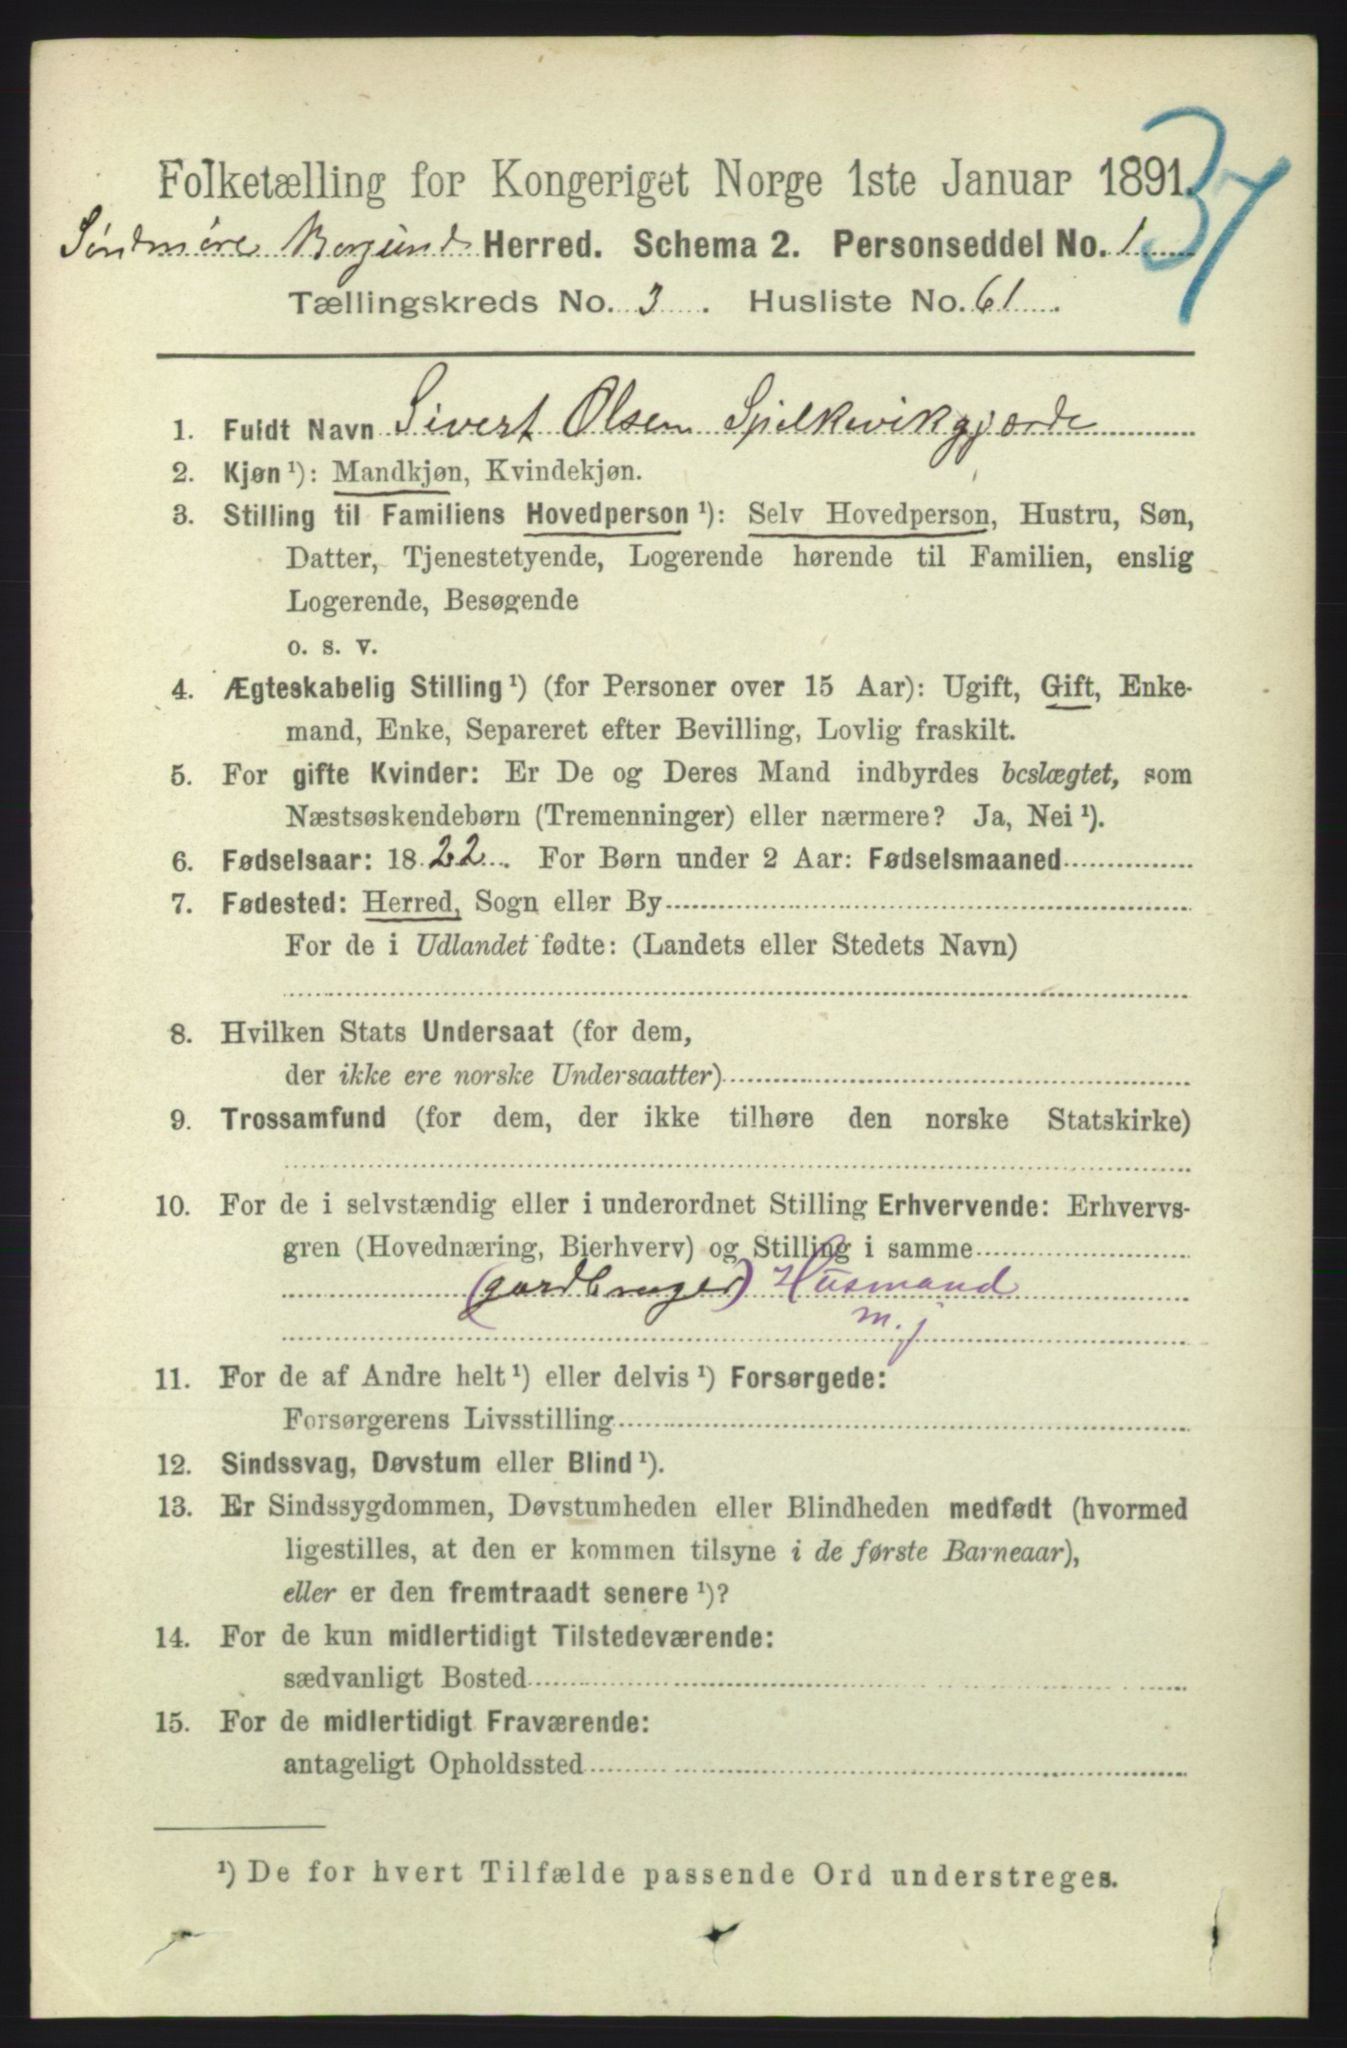 37
Folketælling for Kongeriget Norge 1ste Januar 1891.
Søndmøre Borgund Herred. Schema 2. Personseddel No. 1
Tællingskreds No. 3. Husliste No. 61.
1. Fuldt Navn Sivert Olsen Spilkevikgjærde
2. Kjøn ¹): Mandkjøn, Kvindekjøn.
3. Stilling til Familiens Hovedperson ¹): Selv Hovedperson, Hustru, Søn,
Datter, Tjenestetyende, Logerende hørende til Familien, enslig
Logerende, Besøgende
o. s. v.
4. Ægteskabelig Stilling ¹) (for Personer over 15 Aar): Ugift, Gift, Enke-
mand, Enke, Separeret efter Bevilling, Lovlig fraskilt.
5. For gifte Kvinder: Er De og Deres Mand indbyrdes beslægtet, som
Næstsøskendebørn (Tremenninger) eller nærmere? Ja, Nei ¹).
6. Fødselsaar: 1822. For Børn under 2 Aar: Fødselsmaaned
7. Fødested: Herred, Sogn eller By
For de i Udlandet fødte: (Landets eller Stedets Navn)
8. Hvilken Stats Undersaat (for dem,
der ikke ere norske Undersaatter)
9. Trossamfund (for dem, der ikke tilhøre den norske Statskirke)
10. For de i selvstændig eller i underordnet Stilling Erhvervende: Erhvervs-
gren (Hovednæring, Bierhverv) og Stilling i samme
(gardbruger) Husmand
m. j
11. For de af Andre helt ¹) eller delvis ¹) Forsørgede:
Forsørgerens Livsstilling
12. Sindssvag, Døvstum eller Blind ¹).
13. Er Sindssygdommen, Døvstumheden eller Blindheden medfødt (hvormed
ligestilles, at den er kommen tilsyne i de første Barneaar),
eller er den fremtraadt senere ¹)?
14. For de kun midlertidigt Tilstedeværende:
sædvanligt Bosted
15. For de midlertidigt Fraværende:
antageligt Opholdssted
¹) De for hvert Tilfælde passende Ord understreges.